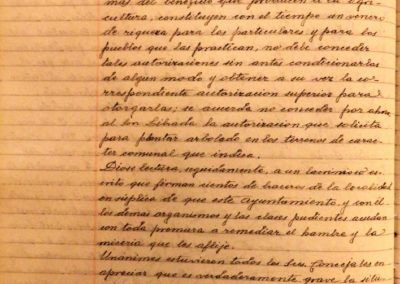 más del beneficio que producen a la agri-
cultura, constituyen con el tiempo un venero
de riqueza para los particulares y para los
pueblos que las practican, no debe conceder
tales autorizaciones sin antes condicionarlas
de algun modo y obtener a su vez la co-
rrespondiente autorizacion superior para
otorgarlas; se acuerda no conceder por ahora
al Sr. Lóbado la autorizacion que solicita
para plantar arbolado en los terrenos de carac-
ter comunal que indica.
Diose lectura, seguidamente, a un laconico es-
crito que forman cientos de braceros de la localidad
en súplica de que este Ayuntamiento y con él
los demas organismos y las clases pudientes acudan
con toda premura a remediar el hambre y la
miseria que les aflije.
Unánimes estuvieron todos los Sres. Concejales en
apreciar que es verdaderamente grave la situ-